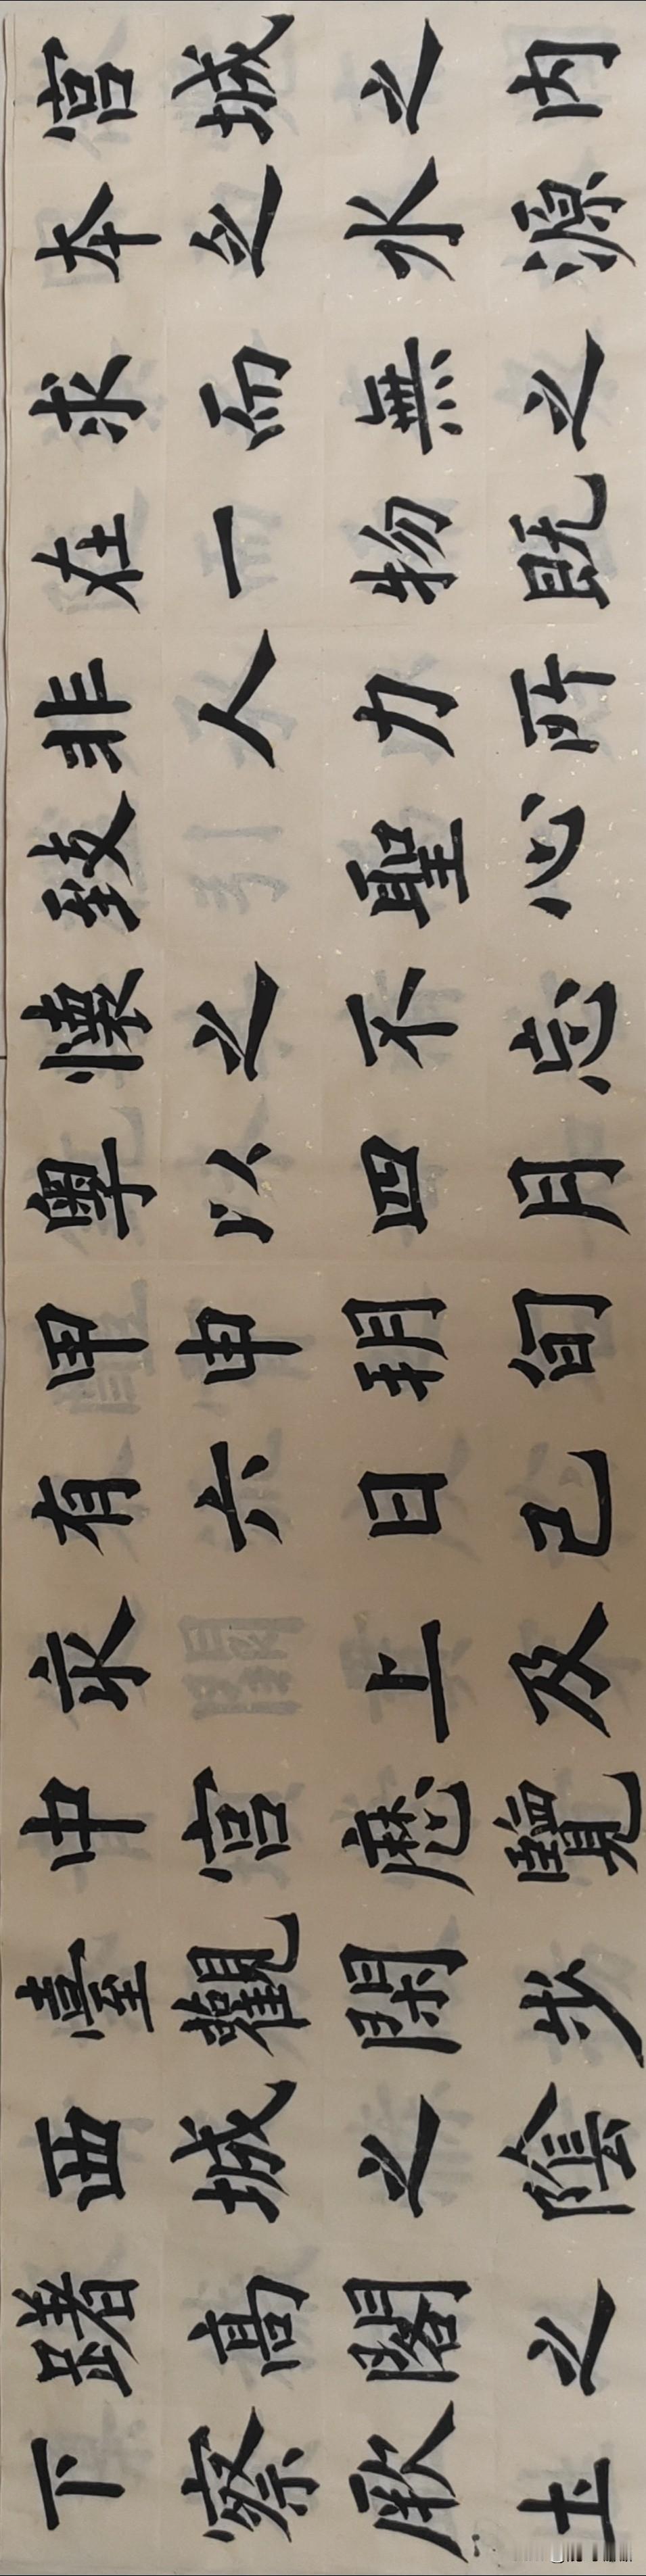 宮城之内
本乏水源
求而無之
在一物既
非人力所
致聖心
懷之不忘
粤以四月
甲申朔旬
有六日己
亥上及
中宮歷覽
臺觀閑步
西城之陰
躇高閣之
下察厥土